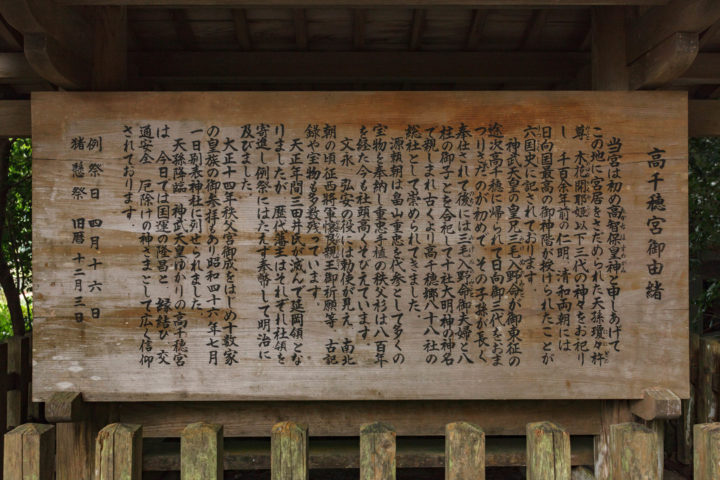 高千穂宮御由緒
当宮は初め高智保皇神と申しあげて
この地に宮居をさだめられた天孫瓊々杵
尊 木花開耶姫以下三代の神々をお祀り
し 千百余年前の仁明 清和両朝には
日向国最高の御神階が授けられたことが
六国史に記されております
神武天皇の皇兄三毛入野命が御東征の
途次高千穂に帰られて日向御三代をおま
つりされたのが初めで その子孫が長く
奉仕されて後には三毛入野命御夫婦と八
柱の御子とを合祀して十社大明神の神名
で親しまれ古くより高千穂郷八十八社の
総社として崇められてきました。
源頼朝は畠山重忠を代参として多くの
宝物を奉納し重忠手植の秩父杉は八百年
を経た今も社頭高くそびえています。
文永 弘安の役には勅使が見え 南北
朝の頃征西将軍懐良親王御祈願等 古記
録や宝物も多数残っています。
天正年間三田井氏が滅んで延岡領とな
りましたが 歴代藩主はそれぞれ社領を
寄進し例祭にはたえず奉幣して明治に
及びました。
大正十四年秩父宮御成をはじめ十数家
の皇族の御参拝もあり昭和四十六年七月
一日別表神社に列せられました。
天孫降臨 神武天皇ゆかりの高千穂宮
は 今日では国運の隆昌と 縁結び 交
通安全 厄除けの神さまとして広く信仰
されております。
例祭日 四月十六日
猪懸祭 旧暦十二月三日